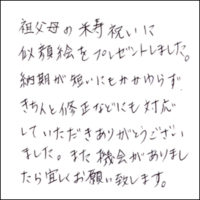 祖父母の米寿祝いに
似顔絵をプレゼントしました。
納期が短いにもかかわらず
きちんと修正などにも対応
していただきありがとうござい
ました。また機会がありまし
たら宜しくお願い致します。